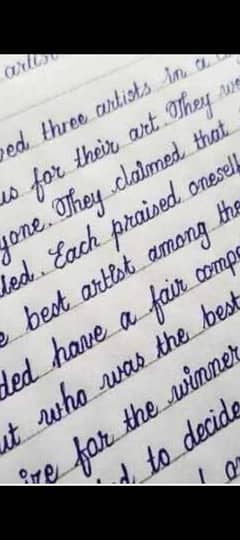 artist
ved three artists in a
us for their art. They we
yone. They claimed that
led. Each praised oneself
e best artist among the
ded have a fair compe
ut who was the best
ize for the winner
d to decide